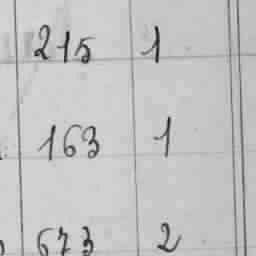 215 1
163 1
673 2